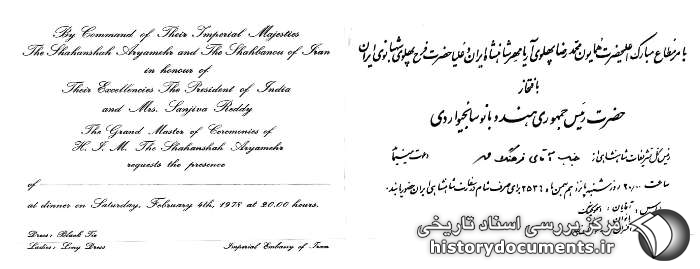 By Command of Their Imperial Majesties
The Shahanshah Aryamehr and The Shahbanou of Iran
in honour of
Their Excellencies The President of India
and Mrs. Sanjiva Reddy
The Grand Master of Ceremonies of
H. I. M. The Shahanshah Aryamehr
requests the presence
of
at dinner on Saturday, February 4th, 1978 at 20.00 hours.
Dress: Black Tie
Ladies: Long Dress
Imperial Embassy of Iran
بامر مطاع مبارک اعلیحضرت همایون محمد رضا پهلوی آریامهر شاهنشاه ایران و علیاحضرت فرح پهلوی شهبانوی ایران
بافتخار
حضرت رئیس جمهوری هند و بانو سانجیوا ردی
رئیس کل تشریفات شاهنشاهی از جناب آقای فرهنگ مهر دعوت مینماید
ساعت ۲۰٫۰۰ روز شنبه پانزدهم بهمن ماه ۲۵۳۶ برای صرف شام در سفارت شاهنشاهی ایران حضور یابند
لباس: آقایان:
مرکز بررسی اسناد تاریخی
historydocuments.ir